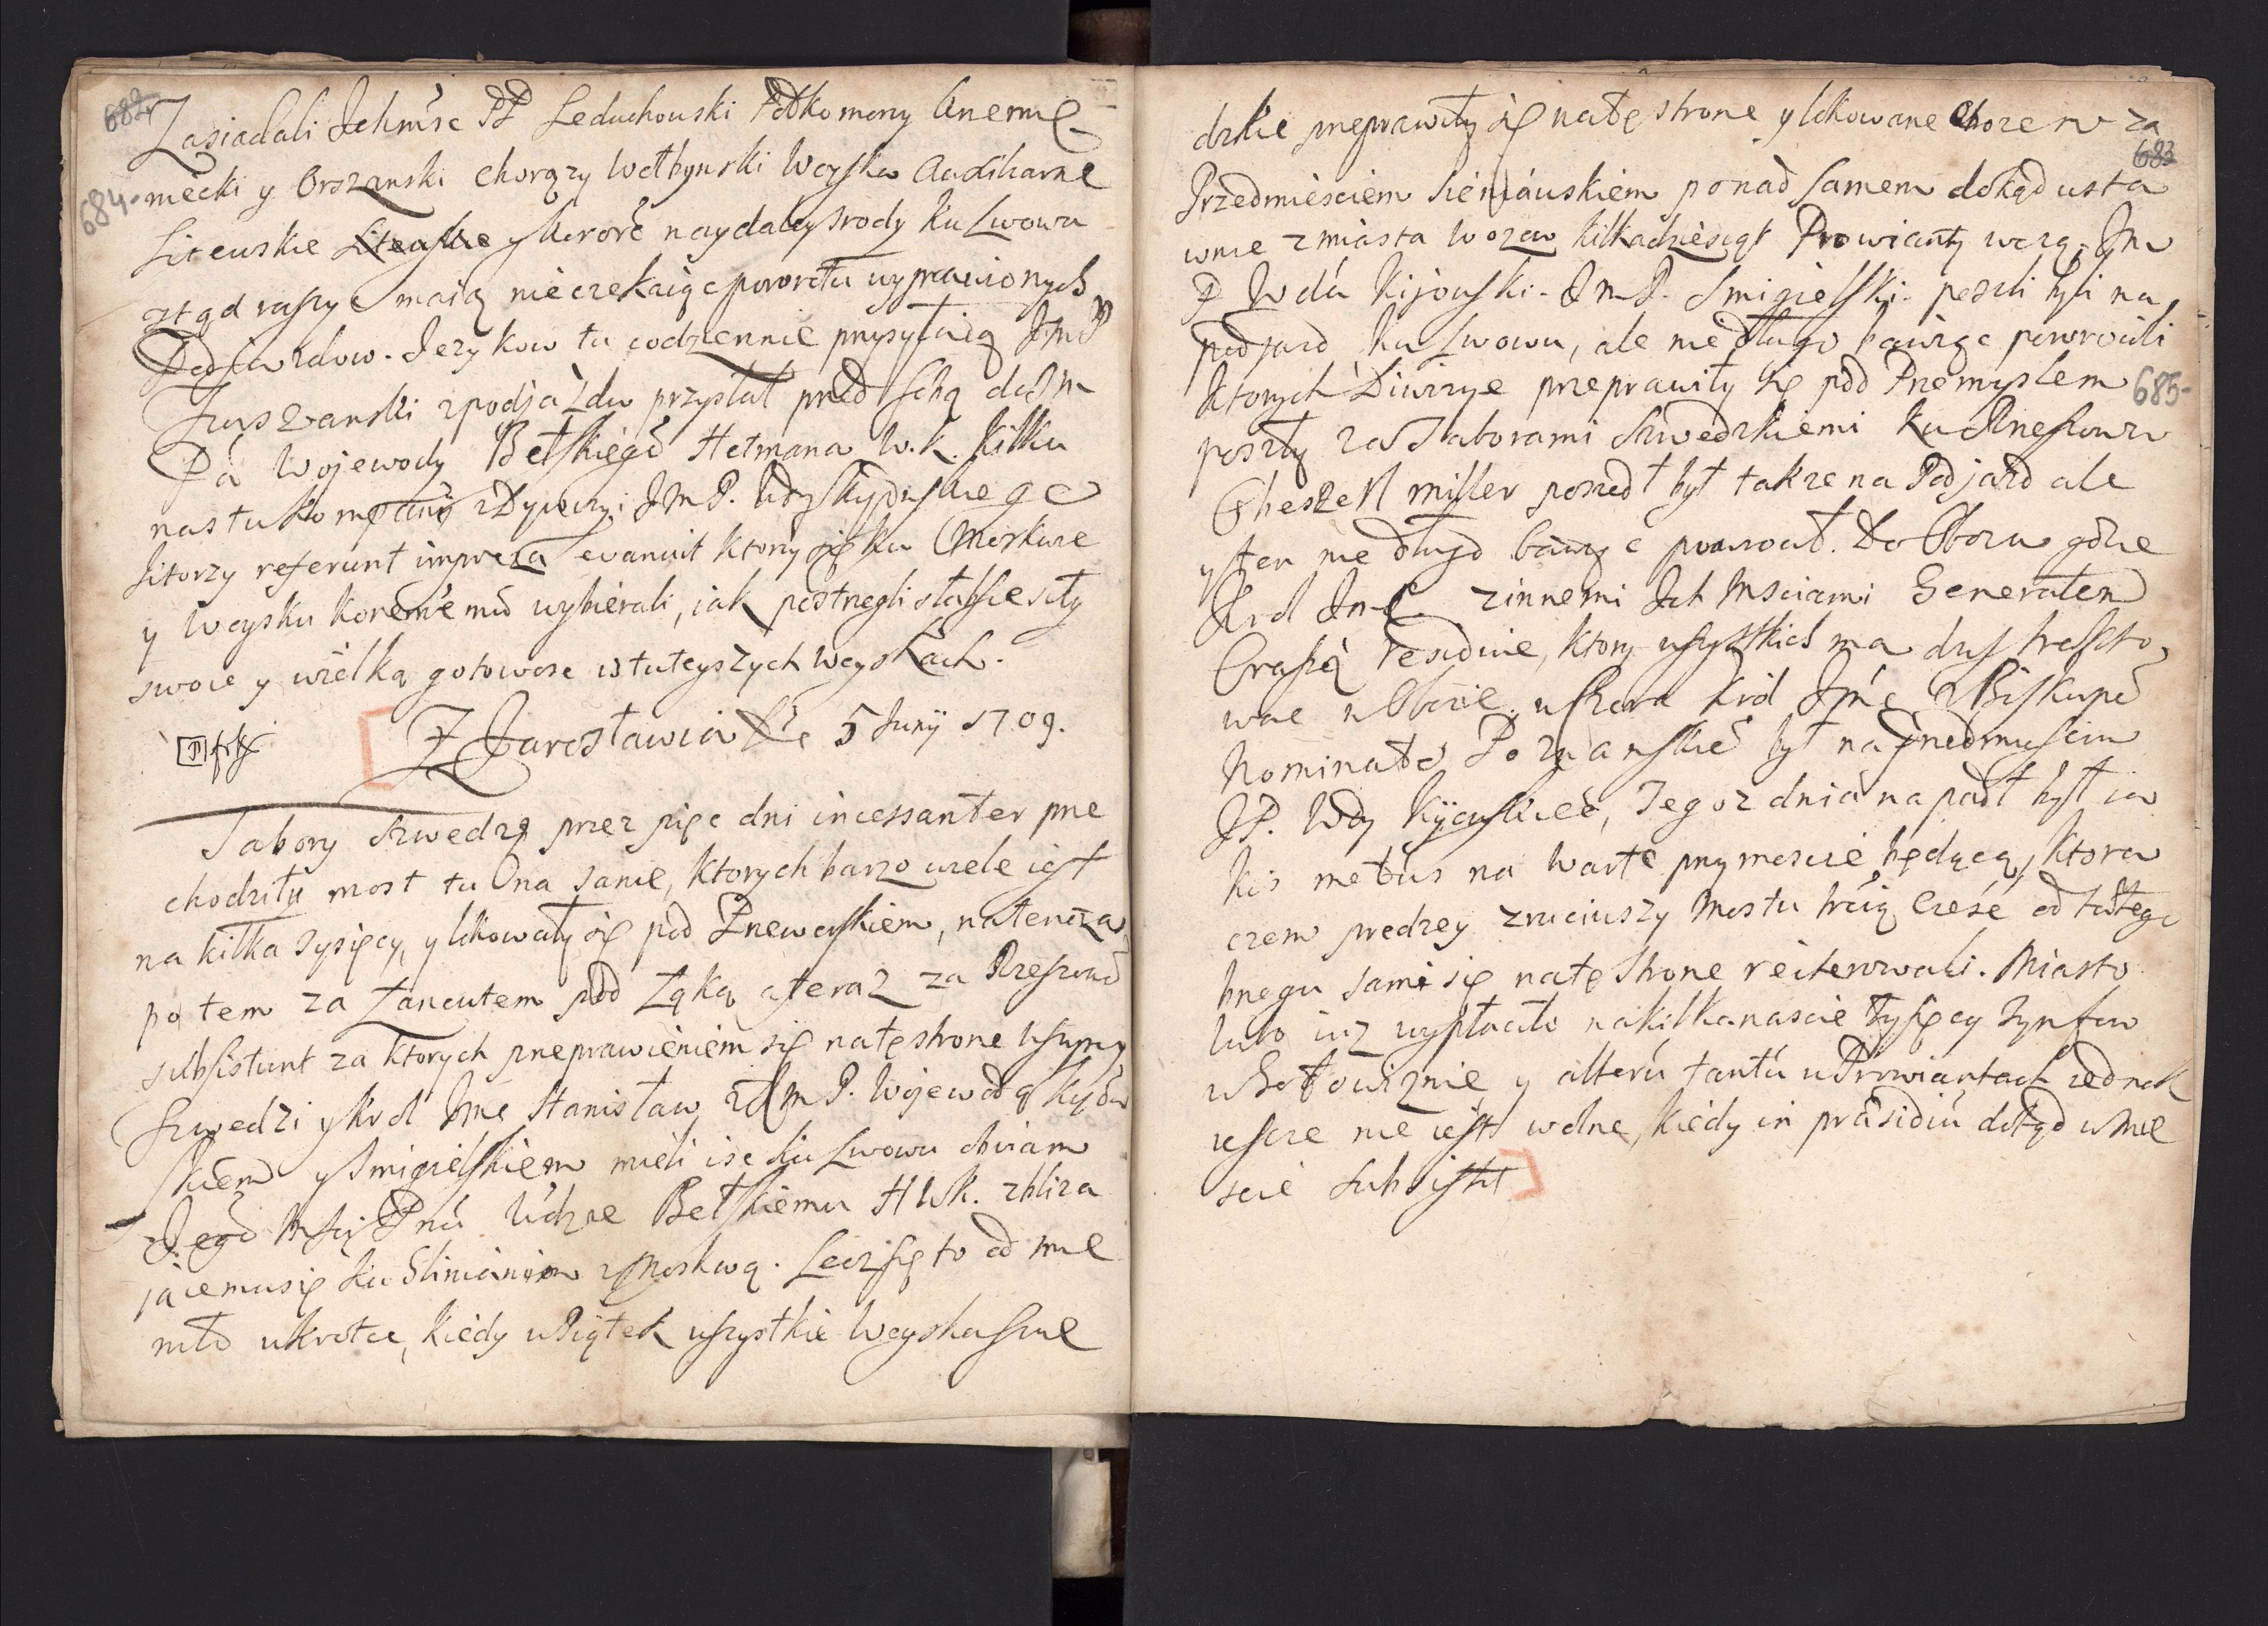 682
Zasiadali Ichmśc PP Leduchouski Podkomorzy Kremie
684. niecki y Orszanski Chorąży Wołhynski Woyska Auxiliarne
Liteuskie y koroñe naydaley srody ku Lwowu
ztąd raszyc maią nie czekaiąc powrotu wyprawionych
Podjazdow. Jezykow tu codziennie przysyłaią JmP
Juszanski z podjazdu przysłał przed sobą do Jm
Pá Wojewody Bełskiego Hetmana W.k. kilku
nastu z Dywizyi JmP.
ktorzy referunt impreza evanuit ktorzy się ku Moskwie
y Woysku Koronnemu wybierali, iak postrzegli słabsze siły
swoie y wielką gotowosc w tuteyszych Woyskach.
Z Jarosławia die 5 Junij 1709.
Tabory Szwedzą przez pięc dni incessanter prze
chodziły most tu na Sanie, ktorych barzo wiele iest
na kilka Tysięcy, y lokowały się pod Przeworskiem, natencza
potem za Łancutem pod Łąką a teraz za Rzeszowe
subsistunt za ktorych przeprawieniem się natę strone wszyscy
Szwedzi y krol Jmc Stanisław z JmP. Wojewodą Kyiow
skiem y Smigielskiem mieli isc ku Lwowu obviam
Jego Mści Pnu Wdzie Bełskiemu HWk. zbliza
jacemusię ku Glinianom z Moskwą. Lecz się to od mie
niło wkrotce, kiedy w Piątek wszystkie Woyska szwe
dzkie przeprawiły się natę strone y lokowane obozem za
683
Przedmiesciem Sieniauskiem ponad Sanem dokąd usta
wnie z miasta Wozow kilkadziesiąt Prowianty wozą. Jm
P Wdá Kijouski. JmP. Smigielski poszli byli na
podjazd ku Lwowu, ale nie długo bawiąc powrocili
ktorych Diwizye przeprawiły się pod Przemyslem 685
poszły za Taborami Szwedzkiemi ku Rzeszowu
miller poszedł był takze na Podjazd ale
y ten nie długo bawiąc powrocił. Do Obozu gdzie
Krol Jmc z innemi Ich Mściami Generałem
Crassą residuie, ktory wszystkich ma dystrelokto,
wac w Obozie. wczora Krol Jmc z Biskupe
Nominate Poznanskie był na przedmiesciu
JP. Wdy Kyiouskiee, Tegoz dnia napadł był ia
kis metus na Warte przy moscie będącą, ktora
czem predzey zruciuszy Mostu trcią Czesc od tamtego
brzegu sami się natę strone reiterowali. Miasto
lubo iuz wypłaciło na kilkanascie Tysięcy Tynfow
w Gotowiznie y alterú tantú w Prowiantach iednak
iescze nie iest wolne, kiedy in præsidiú dotąd w mie
scie subsistit